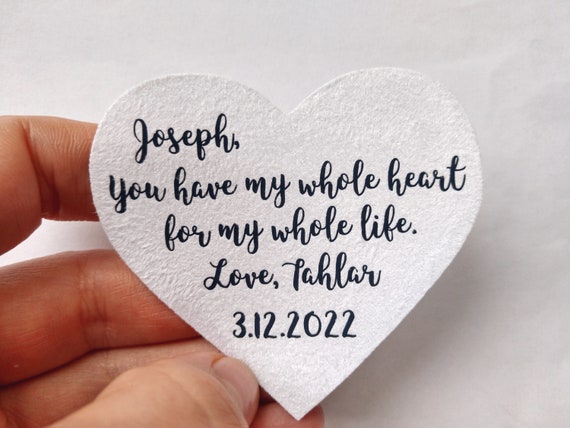 Joseph,
You have my whole heart
for my whole life.
Love, Tahlar
3.12.2022